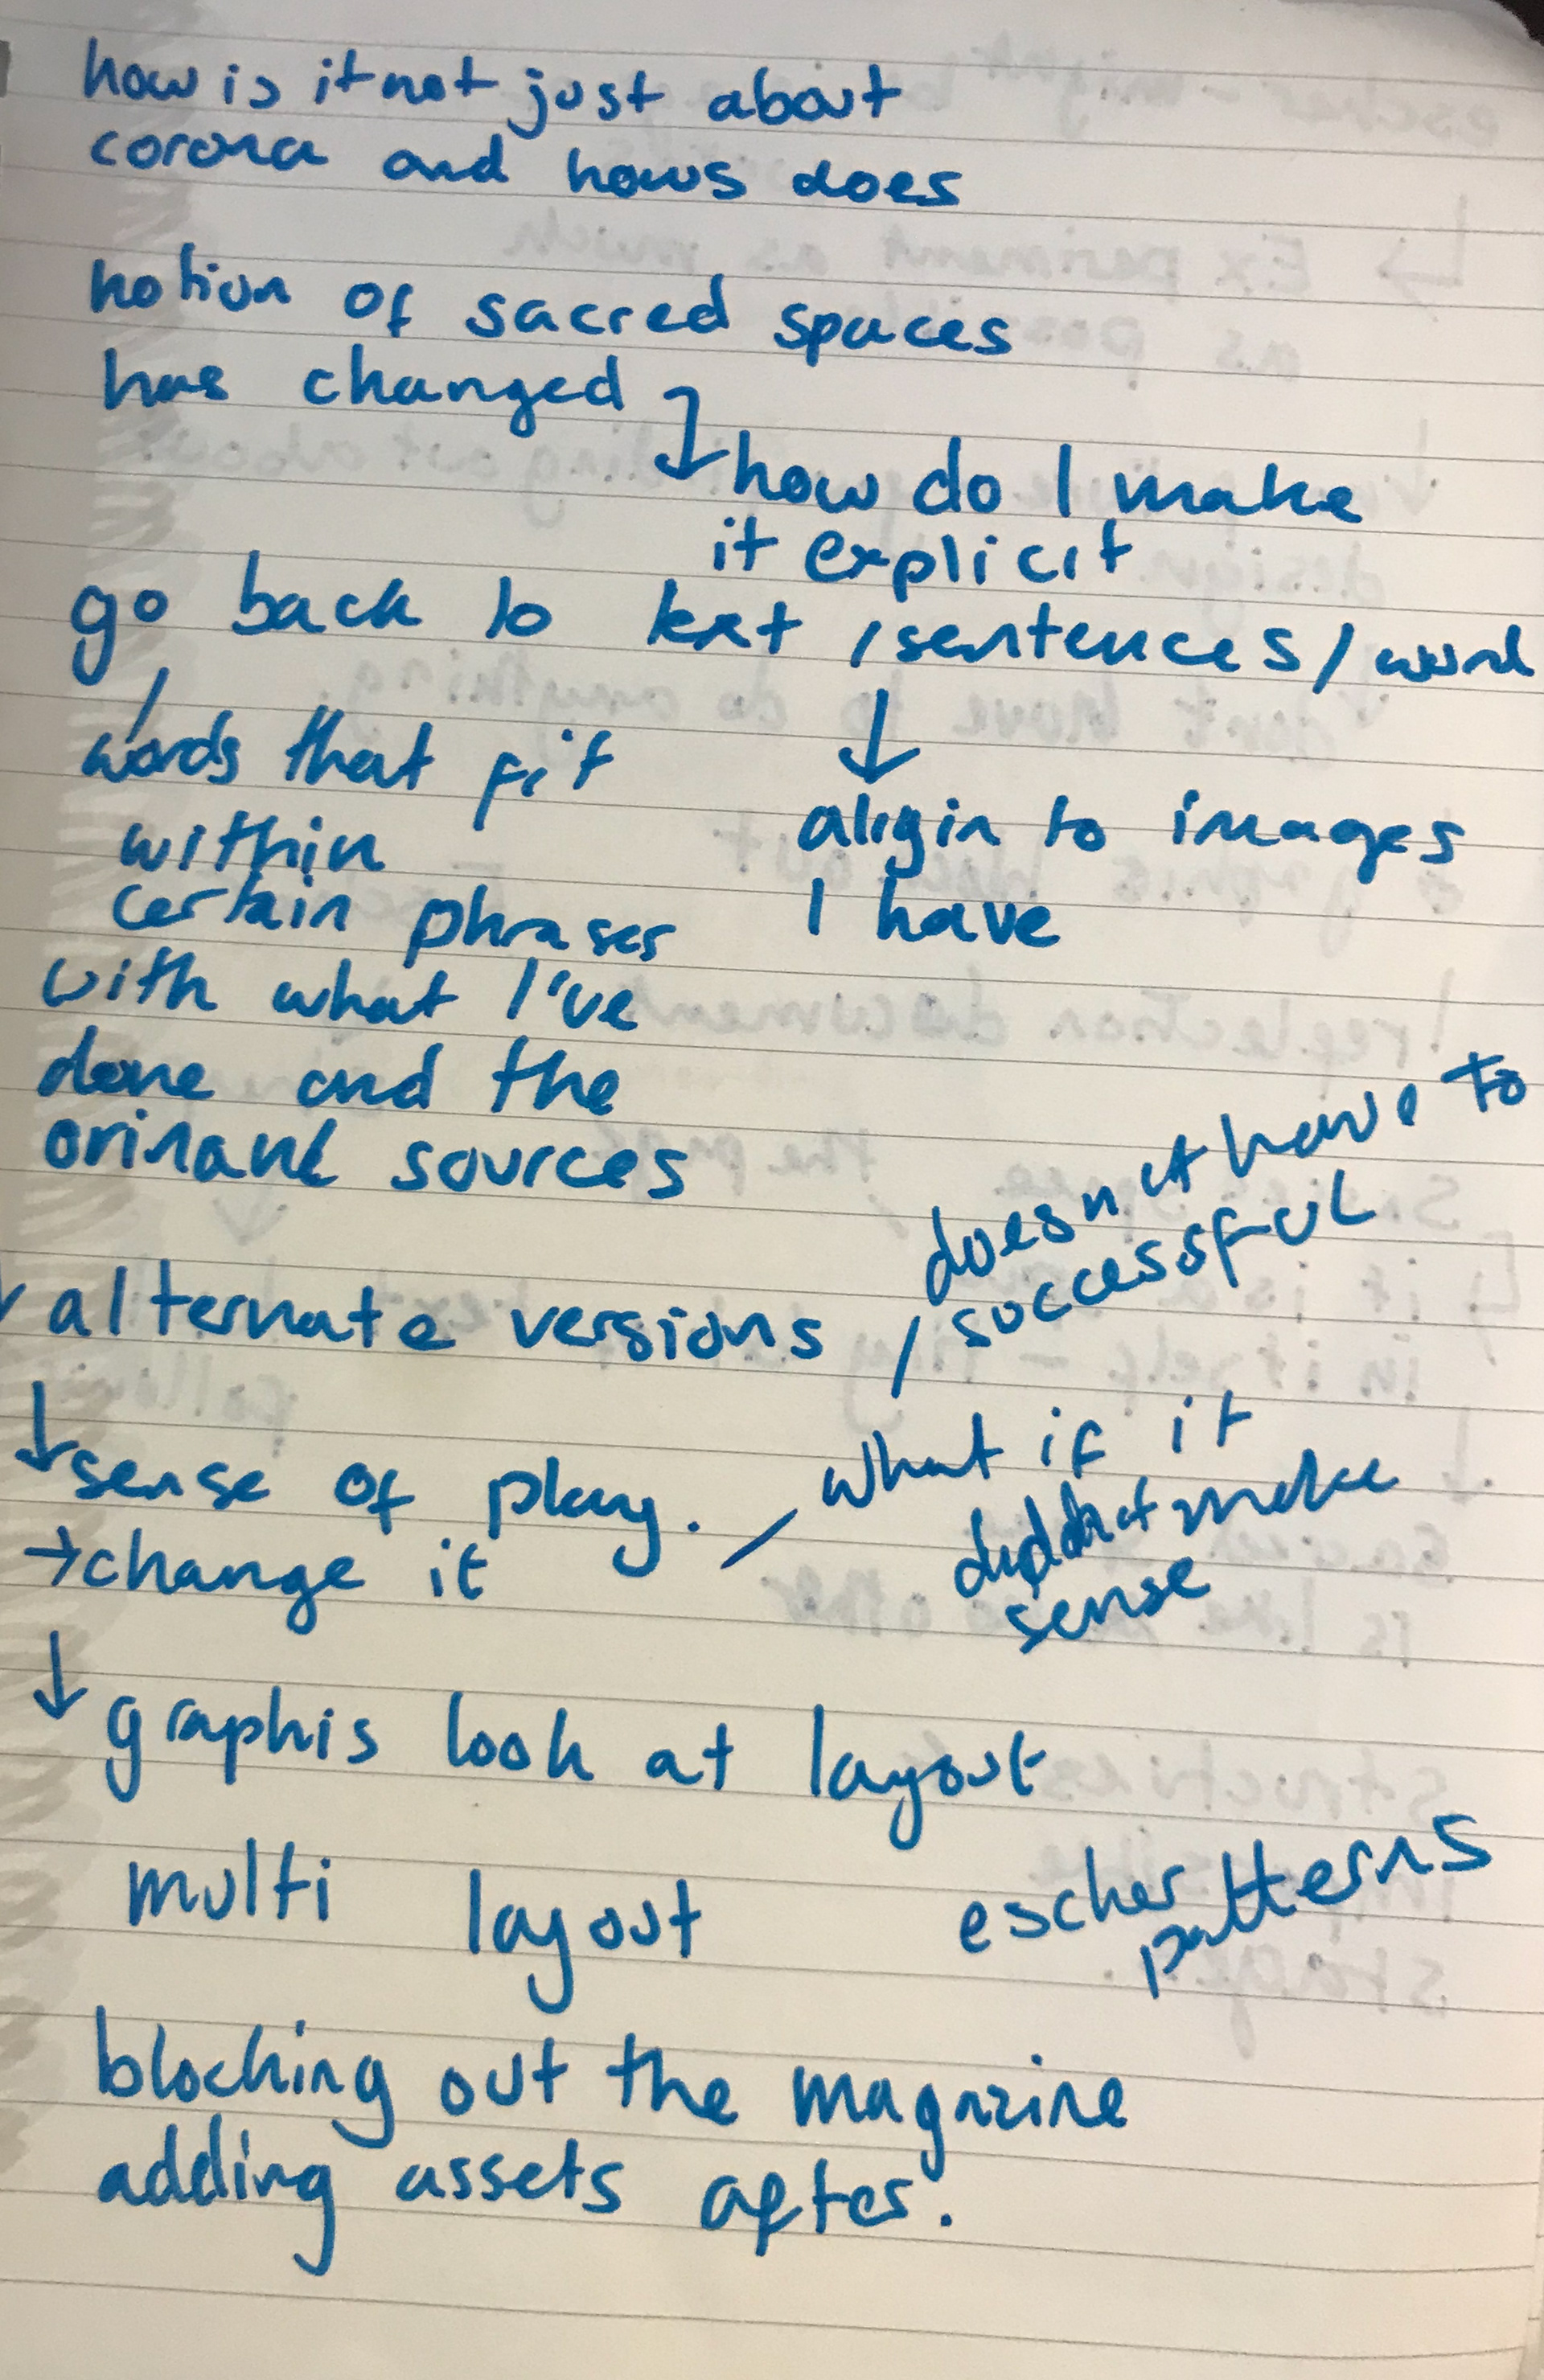 how is it not just about
corona and hows does
notion of sacred spaces
has changed
how do I make
it explicit
go back to text / sentences / word
words that fit
within
certain phrases
with what I've
done and the
align to images
I have
sources
alternate versions /
doesn't have to
successful
sense of play.
→ change it
what if it
make
sense
graphis look at layout
multi layout
escher
patterns
blocking out the magazine
adding assets after.